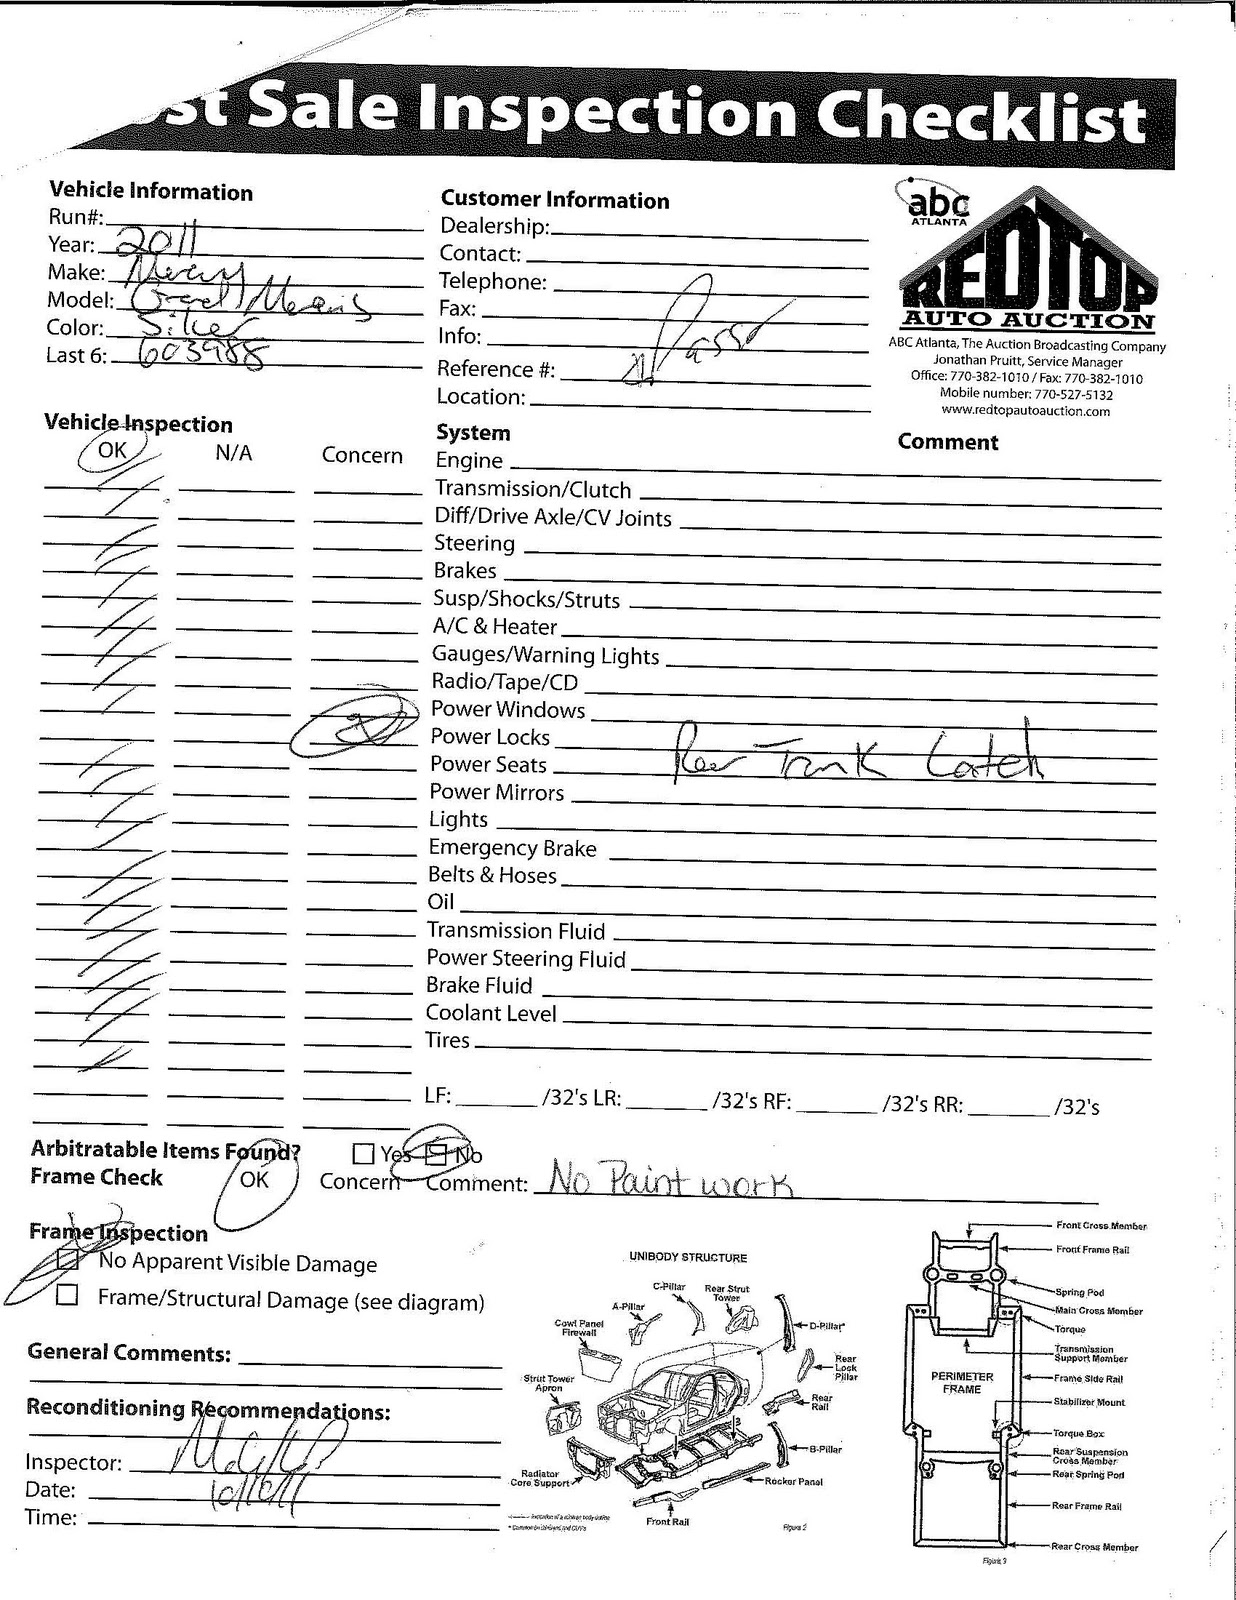 st Sale Inspection Checklist
Vehicle Information
Run#:
Year: 2011
Make: Mercury
Model: Grand Marquis
Color: Silver
Last 6: 603988
Customer Information
Dealership:
Contact:
Telephone:
Fax:
Info:
Reference #:
Location:
abc
ATLANTA
REDTOP
AUTO AUCTION
ABC Atlanta, The Auction Broadcasting Company
Jonathan Pruitt, Service Manager
Office: 770-382-1010 / Fax: 770-382-1010
Mobile number: 770-527-5132
www.redtopautoauction.com
Vehicle Inspection
OK N/A Concern
System Comment
Engine
Transmission/Clutch
Diff/Drive Axle/CV Joints
Steering
Brakes
Susp/Shocks/Struts
A/C & Heater
Gauges/Warning Lights
Radio/Tape/CD
Power Windows
Power Locks
Rear Trunk Latch
Power Seats
Power Mirrors
Lights
Emergency Brake
Belts & Hoses
Oil
Transmission Fluid
Power Steering Fluid
Brake Fluid
Coolant Level
Tires
LF: /32's LR: /32's RF: /32's RR: /32's
Arbitratable Items Found? Yes No
Frame Check OK Concern Comment: No Paint work
Frame Inspection
No Apparent Visible Damage
Frame/Structural Damage (see diagram)
General Comments:
Reconditioning Recommendations:
Inspector:
Date:
Time:
UNIBODY STRUCTURE
C-Pillar
Rear Strut
Tower
A-Pillar
D-Pillar*
Cowl Panel
Firewall
Rear
Lock
Pillar
Strut Tower
Apron
Rear
Rail
B-Pillar
Radiator
Core Support
Rocker Panel
Front Rail
Figure 2
Front Cross Member
Front Frame Rail
Spring Pod
Main Cross Member
Torque
Transmission
Support Member
PERIMETER
FRAME
Frame Side Rail
Stabilizer Mount
Torque Box
Rear Suspension
Cross Member
Rear Spring Pod
Rear Frame Rail
Rear Cross Member
Figure 3